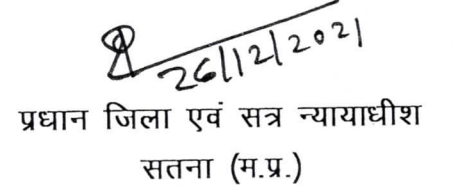 26/12/2021
प्रधान जिला एवं सत्र न्यायाधीश
सतना (म.प्र.)